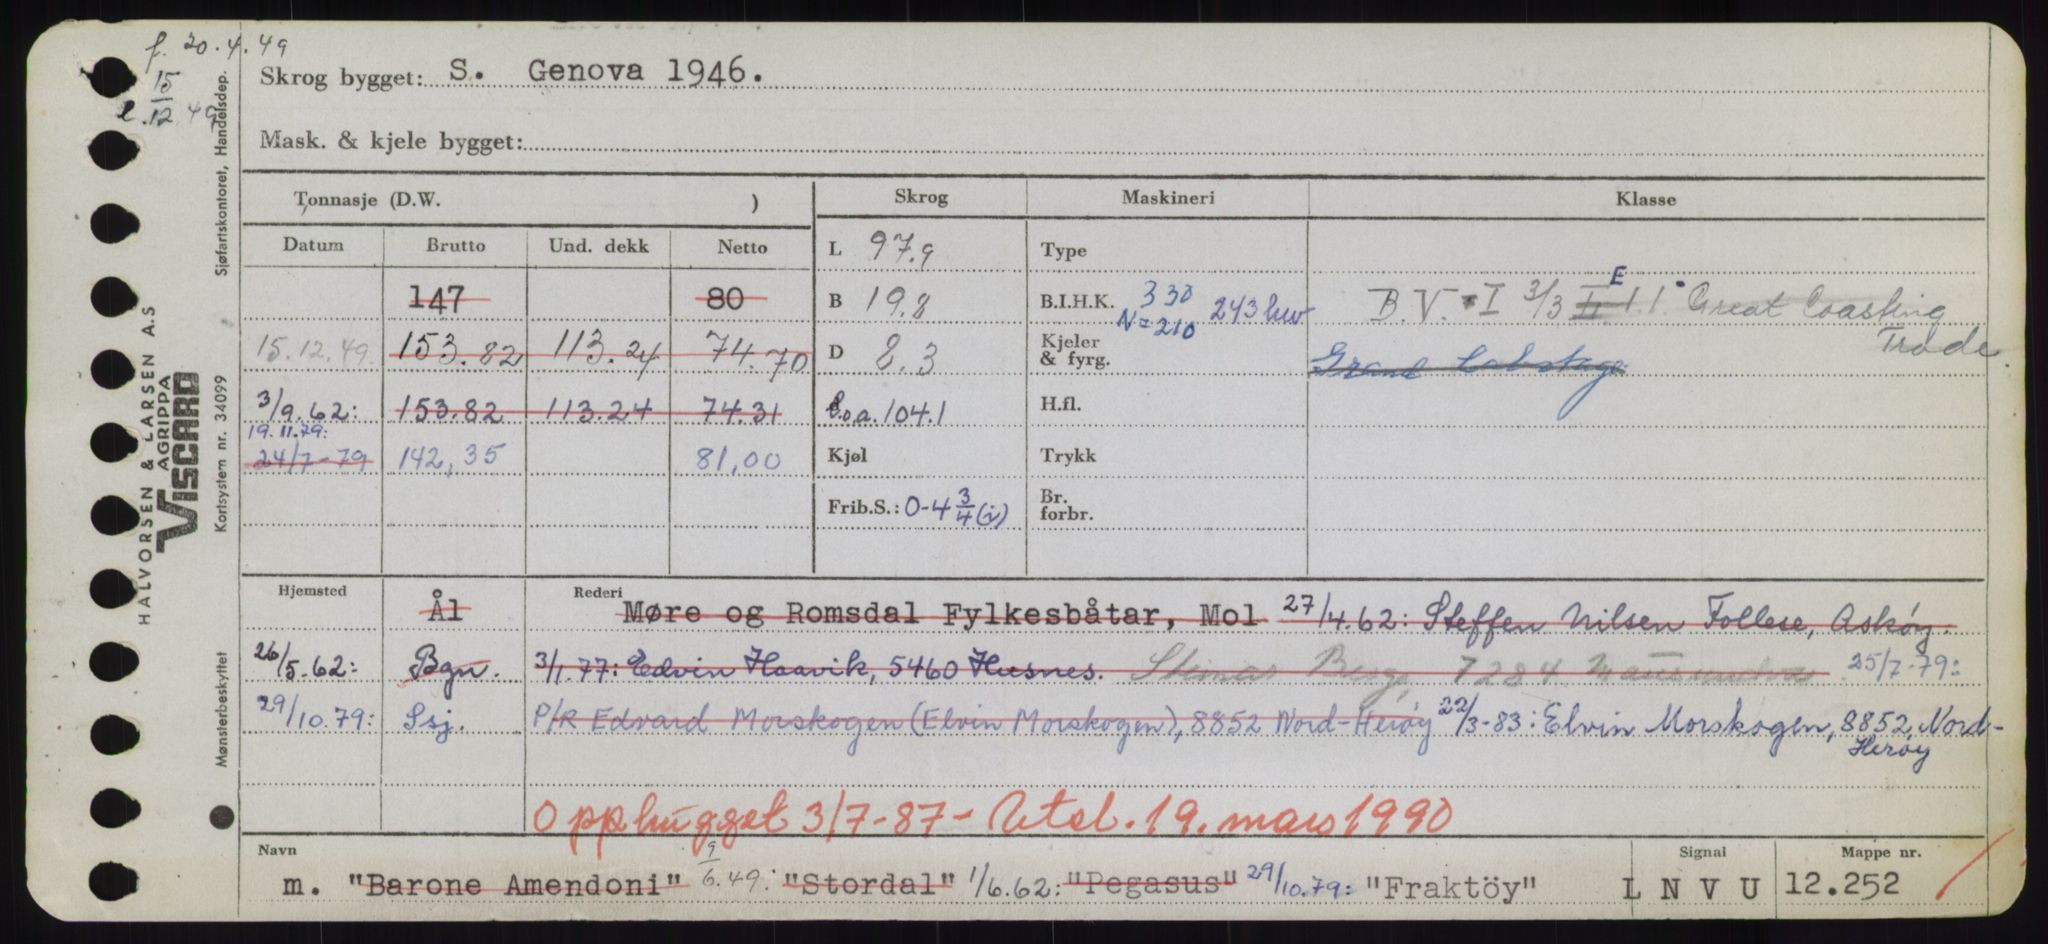 f. 20.4.49
15
l. 12.49
Skrog bygget: S. Genova 1946.
Mask. & kjele bygget:
Tonnasje (D.W. )
Skrog
Maskineri
Klasse
Datum Brutto Und. dekk Netto
L 97.9
Type
147 80
B 19.8
B.I.H.K. 330 243 hev
N=210
B.V. I 3/3 II E 1.1. Great Coasting
Trade
15.12.49. 153.82 113.24 74.70
D 8.3
Kjeler
& fyrg.
Grand Cabotage
3/9.62: 153.82 113.24 74.31
l.o.a. 104.1
H.fl.
19.11.79:
24/7-79 142,35 81,00
Kjøl
Trykk
Frib.S.: 0-4 3/4 (i)
Br.
forbr.
Hjemsted Ål
Rederi
Møre og Romsdal Fylkesbåtar, Mol 27/4.62: Steffen Nilsen Follese, Askøy.
26/5.62: Bgn. 3/1.77: Edvin Haavik, 5460 Husnes. Berg, 7284 25/7-79:
29/10.79: Ssj. P/R Edvard Morskogen (Elvin Morskogen), 8852 Nord-Herøy 22/3-83: Elvin Morskogen, 8852, Nord-
Herøy
Opphugget 3/7-87 - Utsl. 19. mars 1990
Navn
Signal
Mappe nr.
m. "Barone Amendoni" 9/6.49: "Stordal" 1/6.62: "Pegasus" 29/10.79: "Fraktöy" L N V U 12.252
HALVORSEN & LARSEN A.S
AGRIPPA
VISCARD
Mønsterbeskyttet Kortsystem nr. 34099 Sjøfartskontoret, Handelsdep.